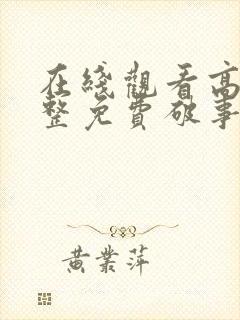 在綫觀看高
整免費破事
黃業萍